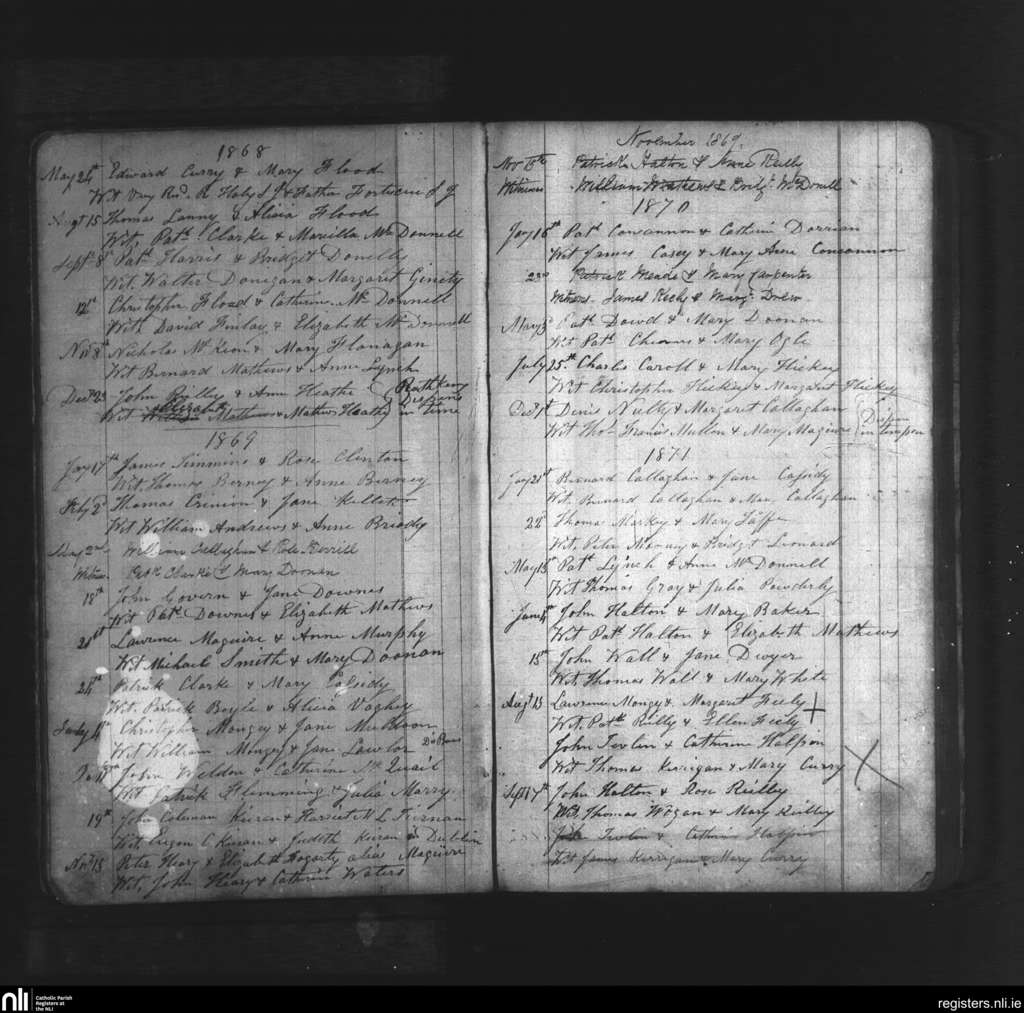 1868
May 24th Edward Curry & Mary Flood
Wit Very Revd. R Haly S J & Father Fortescue S J
Augt 15 Thomas Lanny & Alicia Flood
Wit, Patk Clarke & Marcilla McDonnell
Septr 8th Patk Harris & Bridget Donelly
Wit. Walter Donigan & Margaret Ginety
12th Christopher Flood & Catherine McDonnell
Wit. David Finlay & Elizabeth McDonnell
Novr 8th Nicholas McKeon & Mary Flanagan
Wit Bernard Mathews & Anne Lynch
Decr 23 John Reilly & Ann Heathe Rathkeny
Wit Elizabeth Mathews & Mathew Heathe in time
1869
Jany 17th James Simmins & Rose Clinton
Wit. Thomas Berney & Anne Berney
Feby 2d Thomas Crinion & Jane
Wit William Andrews & Anne Briody
May 2nd William Callaghan & Rose
Witness Patk Clarke & Mary Doonan
18th John Govern & Jane Downes
Wit Patk Downes & Elizabeth Mathews
20th Lawrence Maguire & Anne Murphy
Wit Michael Smith & Mary Doonan
24th Patrick Clarke & Mary Cassidy
Wit. Patrick Boyle & Alicia Vaghey
Christopher Mongey & Jane
Wit William Mongey & Jane Lawlor
John Weldon & Catherine McQuail
Wit Patrick Flemming & Julia Marry
19th John Coleman Kieran & Harriet M L Tiernan
Wit, C. Kieran & Judith Kieran in Dublin
Novr 15 Peter Heary & Elizabeth Hogarty alias Maguire
Wit, John Heary & Catherine Waters
November 1869.
Nov 15th Patrick Halton & Anne Reilly
Witness William & Bridgt McDonell
1870
Jany 16th Patk Concannon & Catherine Dorrian
Wit James Casey & Mary Anne Concannon
23rd Patrick Meade & Mary Carpenter
Witness James Keely & Margt Drew
May 3d Patk Dowd & Mary Doonan
Wit Patk & Mary Ogle
July 25th Charles Caroll & Mary Hickey
Wit Christopher Hickey & Margaret Hickey
Octr 1st Denis Neilly & Margaret Callaghan
Wit Thos Francis Mullen & Mary Maguire
1871
Jany 21st Bernard Callaghan & Jane Cassidy
Wit. Bernard Callaghan & Mary Callaghan
22d Thomas Markey & Mary Taffe
Wit, Peter & Bridget Leonard
May 15 Patk Lynch & Anne McDonnell
Wit Thomas Gray & Julia Powderly
June 4th John Halton & Mary Baker
Wit Patk Halton & Elizabeth Mathews
15th John Wall & Jane Dwyer
Wit. Thomas Wall & Mary White
Augt 13 Lawrence Mongey & Margaret Feely
Wit. Patk Reilly & Ellen Feely
John Tevlin & Catherine Halpin
Wit Thomas Kerrigan & Mary Curry
Sept 17th John Halton & Rose Reilly
Wit. Thomas Wogan & Mary Reilly
John Tevlin & Catherine Halpin
Wit James Kerrigan & Mary Curry
nli
Catholic Parish
Registers at
the NLI
registers.nli.ie